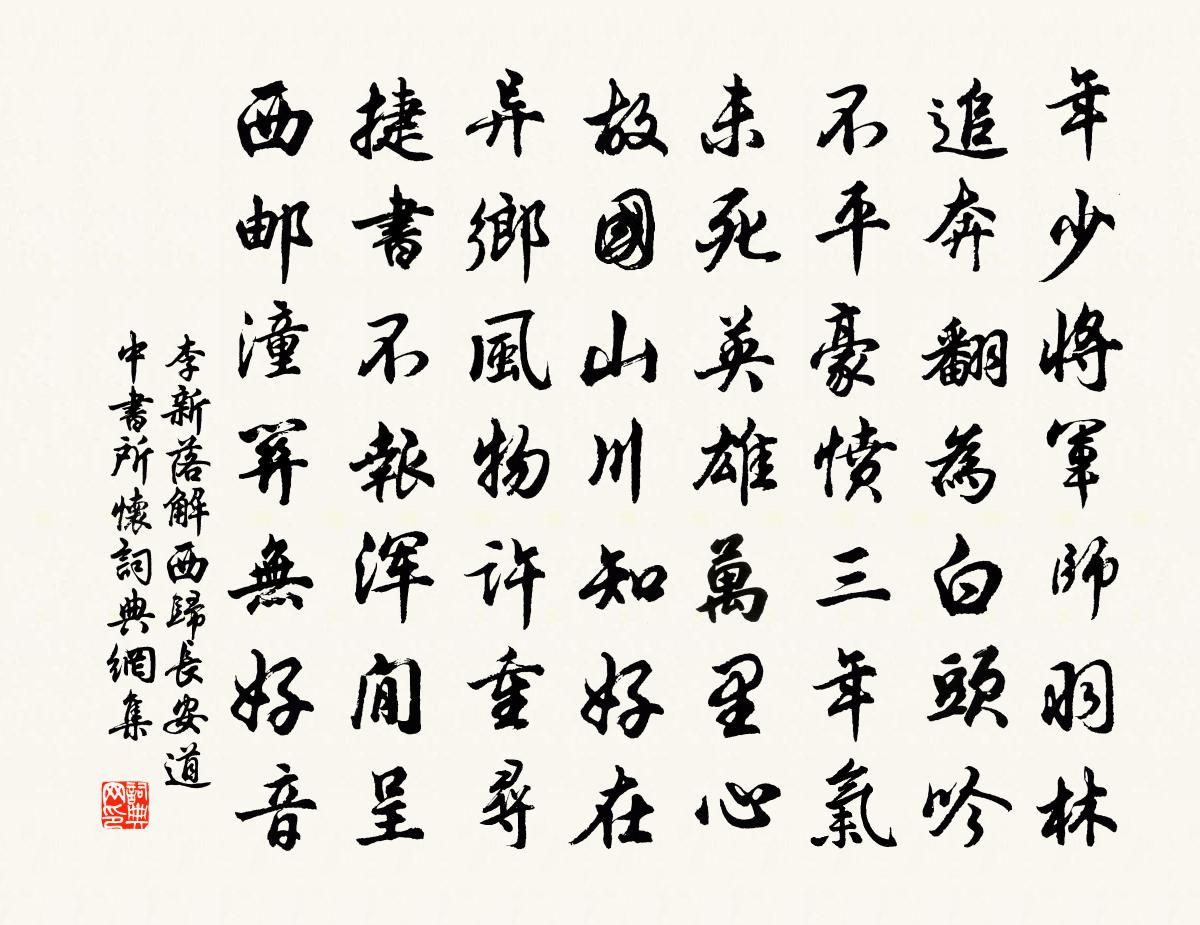 年少將軍師羽林
追奔翻為白頭吟
不平豪憤三年氣
未死英雄萬里心
故國山川知好在
异鄉風物許重尋
捷書不報浑閒呈
西邮潼笄無好音
李新落解西歸長安道
中書所懷詞典網集
詞典网印